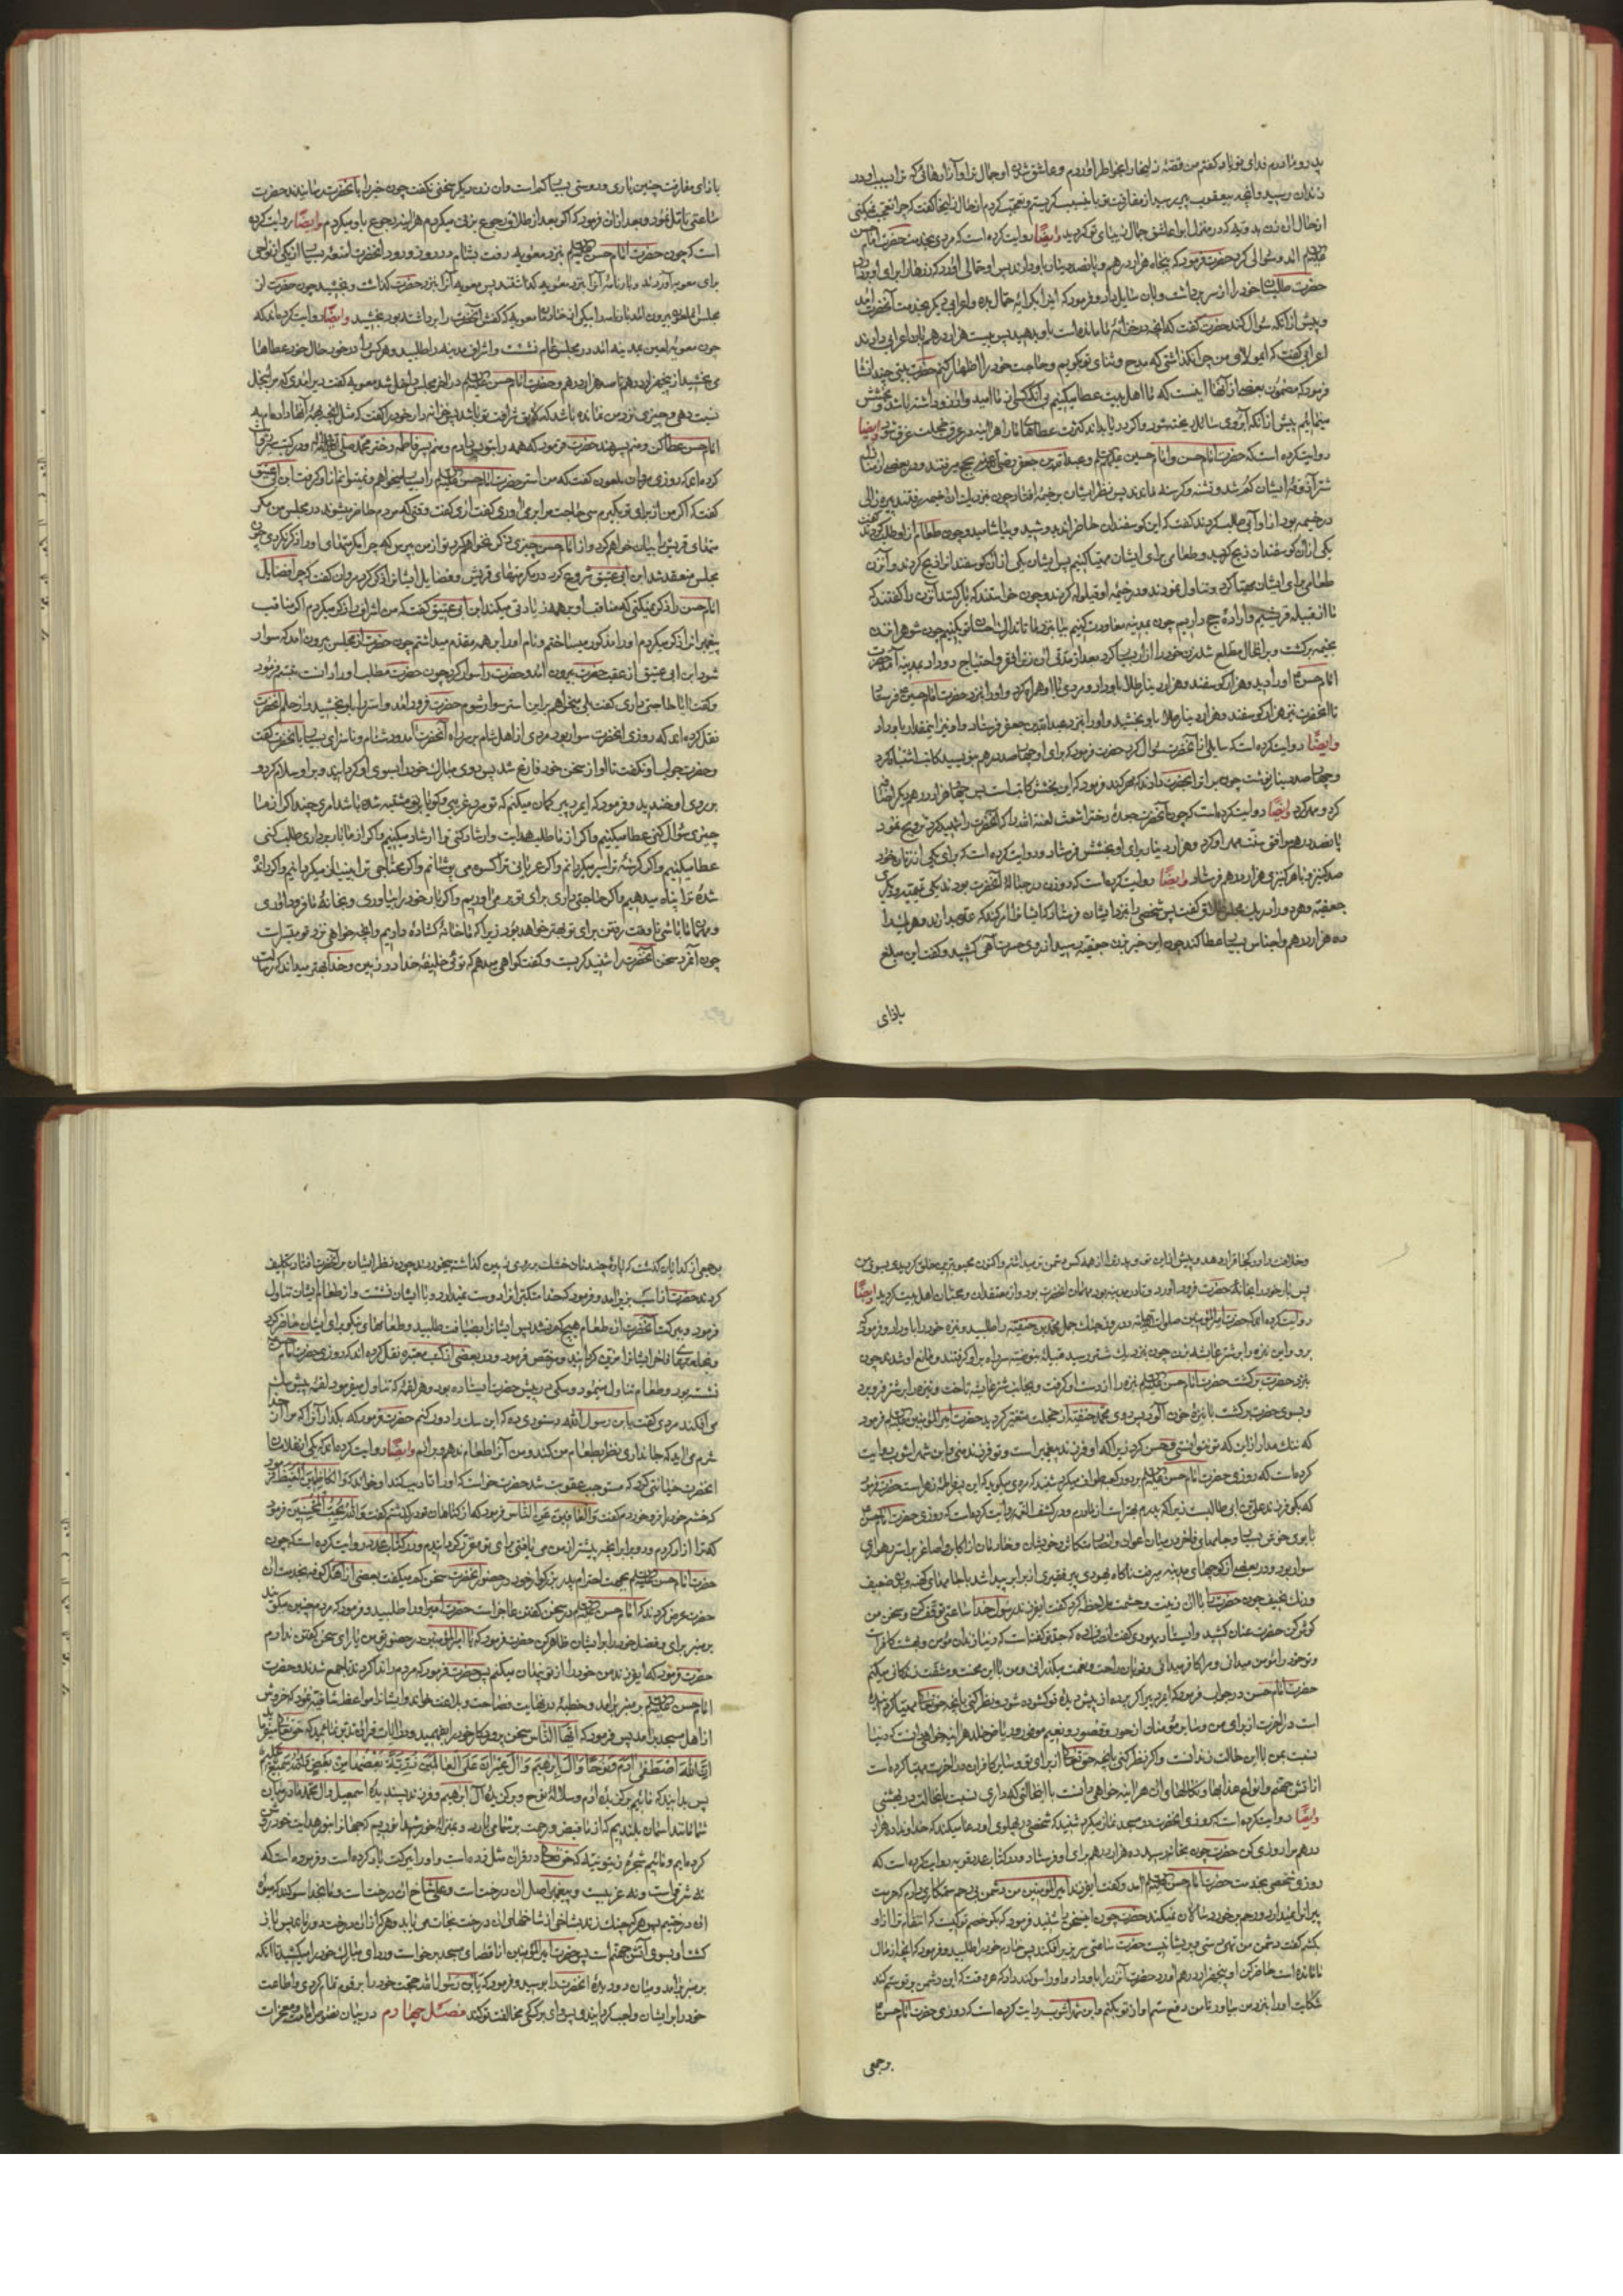 پدر و مادرم فدای تو باد گفتم من قصهٔ زلیخا را بخاطر آوردم و عاشق شدن او جمال ترا و آزارهائی که ترا بسبب او در
زندان رسید و آنچه بیعقوب پیر رسید از مفارقت تو باین سبب گریستم و تعجب کردم از حال زلیخا گفت که چرا تعجب نمیکنی
از حال آن زن بدویه که در منزل ابوا عاشق جمال زیبای تو گردید وایضا روایت کرده است که مردی بخدمت حضرت امام حسن
علیه السلام آمد و سوالی کرد حضرت فرمود که پنجاه هزار درهم و پانصد دینار باو دادند پس او حمالی آورد که زرها را برای او بردارد
حضرت طیلسان خود را از سر برداشت و بآن سایل داد و فرمود که این را بکرایه حمال بده و اعرابی دیگر بخدمت آنحضرت آمد
و پیش از آنکه سوال کند حضرت گفت که آنچه در خزانهٔ ما مانده است باو بدهید پس بیست هزار درهم بآن اعرابی دادند
اعرابی گفت که ای مولای من چرا نگذاشتی که مدح و ثنای تو بگویم و حاجت خود را اظهار کنم حضرت بیتی چند انشا
فرمود که مضمون بعضی از آنها اینست که ما اهل بیت عطا میکنیم بی آنکه کسی از ما امید و آرزو داشته باشد و بخشش
مینمائیم پیش از آنکه آبروی سائل ریخته شود و اگر دریا بداند کثرت عطاهای ما را هر آینه در عرق خجلت غرق شود وایضا
روایت کرده است که حضرت امام حسن و امام حسین علیهما السلام و عبدالله بن جعفر رضی الله عنهم بحج میرفتند و در بعضی از منازل
شتر آذوقهٔ ایشان گم شد و تشنه و گرسنه ماندند پس نظر ایشان بر خیمهٔ افتاد چون بنزدیک آن خیمه رفتند پیر زالی
در خیمه بود از او آبی طلب کردند گفت که این گوسفندان حاضراند بدوشید و بیاشامید و چون طعام از او طلب کردند گفت
یکی از این گوسفندان ذبح کنید و طعامی برای ایشان مهیا کنیم پس ایشان یکی از آن گوسفندان را ذبح کردند و آن زن
طعامی برای ایشان مهیا کرد و تناول نمودند و در خیمه او قیلوله کردند و چون خواستند که بار کنند با آن زن گفتند که
ما از قبیلهٔ قریشیم و ارادهٔ حج داریم چون بمدینه معاودت کنیم بیا بنزد ما تا تدارک احسان تو بکنیم چون شوهر آن زن
بخیمه برگشت و بر آن حال مطلع شد زن خود را آزار بسیار کرد بعد از مدتی آن زن از فقر و احتیاج وارد مدینه آمد حضرت
امام حسن ع او را دید و هزار گوسفند و هزار دینار طلا باو داد و مردی با او همراه کرد و او را بنزد حضرت امام حسین ع فرستاد
تا آنحضرت نیز هزار گوسفند و هزار دینار طلا باو بخشید و او را بنزد عبدالله بن جعفر فرستاد و او نیز اینمقدار باو داد
وایضا روایت کرده است که سایلی از آنحضرت سوال کرد حضرت فرمود که برای او چهارصد درهم بنویسید کاتب اشتباه کرد
و چهارصد دینار نوشت چون برات آنحضرت دادند که مهر کند فرمود که این بخشش کاتب است پس چهار هزار درهم دیگر اضافه
کرد و مهر کرد وایضا روایت کرده است که چون آنحضرت جعدهٔ دختر اشعث لعنه الله را که آنحضرت را شهید کرد تزویج نمود
پانصد درهم موافق سنت مهر او کرد و هزار دینار برای او بخشش فرستاد و روایت کرده است که برای یکی از زنان خود
صد کنیز و با هر کنیزی هزار درهم فرستاد وایضا روایت کرده است که دو زن در حبالهٔ آنحضرت بودند یکی تمیمیه و دیگری
جعفیه و هر دو را در یک مجلس طلاق گفت پس شخصی را بنزد ایشان فرستاد که ایشان را امر کند که عده بدارند و هر یک را
ده هزار درهم و اجناس بسیار عطا کند چون این خبر بزن جعفیه رسید از روی حسرت آهی کشید و گفت این مبلغ
بازای
بازای مفارقت چنین یاری و دوستی بسیار کم است و آن زن دیگر سخنی نگفت چون خبر را بآنحضرت رسانیدند حضرت
ساعتی تامل نمود و بعد از آن فرمود که اگر بعد از طلاق رجوع بزنی میکردم هر آینه رجوع باو میکردم وایضا روایت کرده
است که چون حضرت امام حسن علیه السلام بنزد معویه رفت بشام در روز ورود آنحضرت امتعهٔ بسیار از یکی از نواحی
برای معویه آوردند و بارنامهٔ آنرا بنزد معویه گذاشتند پس معویه آنرا بنزد حضرت گذاشت و بخشید چون حضرت از
مجلس او بیرون آمد بارنامه را بیکی از خادمان معویه که کفش آنحضرت را برداشته بود بخشید وایضا روایت کرده اند که
چون معویه لعین بمدینه آمد در مجلس عام نشست و اشراف مدینه را طلبید و هر کس را در خور حال خود عطاها
می بخشید از پنجهزار درهم تا صد هزار درهم و حضرت امام حسن علیه السلام در آخر مجلس داخل شد معویه گفت دیر آمدی که مرا ببخل
نسبت دهی و چیزی نزد من نمانده باشد که لایق شرافت تو باشد پس خزانه دار خود را گفت که مثل آنچه بهمهٔ آنها داده به
امام حسن عطا کن و منم پسر هند حضرت فرمود که همه را بتو پس دادم و منم پسر فاطمه دختر محمد صلی الله علیه و آله و در کتب نیز روایت
کرده اند که روزی مروان ملعون گفت که من استر حضرت امام حسن علیه السلام را بسیار میخواهم و نمیتوانم از او گرفت ابن ابی عتیق
گفت که اگر من از برای تو بگیرم سی حاجت مرا بر می آوری گفت آری گفت وقتی که مردم حاضر میشوند در مجلس من مکرر
ستمهای قریش را بیان خواهم کرد و از امام حسن چیزی ذکر نخواهم کرد تو از من بپرس که چرا مکرمتهای او را ذکر نکردی چون
مجلس منعقد شد ابن ابی عتیق شروع کرد در مکرمتهای قریش و فضایل ایشان را ذکر کرد مروان گفت که چرا فضایل
امام حسن را ذکر نمیکنی که مناقب او بر همه زیادتی میکند ابن ابی عتیق گفت که من اشراف را ذکر میکردم اگر مناقب
پیغمبران را ذکر میکردم او را مذکور میساختم و نام او را بر همه مقدم میداشتم چون حضرت از مجلس بیرون آمد که سوار
شود ابن ابی عتیق از عقب حضرت بیرون آمد و حضرت را سوار کرد چون حضرت مطلب او را دانست تبسم فرمود
و گفت آیا حاجتی داری گفت بلی میخواهم بر این استر سوار شوم حضرت فرود آمد و استر را باو بخشید و از حلم آنحضرت
نقل کرده اند که روزی آنحضرت سوار بود مردی از اهل شام بر سر راه آنحضرت آمد و دشنام و ناسزای بسیار بآنحضرت گفت
و حضرت جواب او نگفت تا او از سخن خود فارغ شد پس روی مبارک خود را بسوی او گردانید و بر او سلام کرد و
بر روی او خندید و فرمود که ایمرد پیر گمان میکنم که تو مرد غریبی و گویا بر تو مشتبه شده باشد امری چند اگر از ما
چیزی سوال کنی عطا میکنیم و اگر از ما طلب هدایت و ارشاد کنی ترا ارشاد میکنیم و اگر از ما بار برداری طلب کنی
عطا میکنیم و اگر گرسنهٔ ترا سیر میگردانیم و اگر عریانی ترا کسوه می پوشانیم و اگر محتاجی ترا بینیاز میگردانیم و اگر رانده
شدهٔ ترا پناه میدهیم و اگر حاجتی داری برای تو بر می آوریم و اگر بار خود را بیاوری و بخانهٔ ما فرود آوری
و مهمان ما باشی تا وقت رفتن برای تو بهتر خواهد بود زیرا که ما خانهٔ گشاده داریم و آنچه خواهی نزد ما میسر است
چون آنمرد سخن آنحضرت را شنید گریست و گفت گواهی میدهم که توئی خلیفه خدا در زمین و خدا بهتر میداند که رسالت
و خلافت را در کجا قرار دهد و پیش از این تو و پدر ترا از همه کس دشمن تر میداشتم و اکنون محبوبترین خلق گردیدی بسوی من
پس بار خود را بخانهٔ حضرت فرود آورد و تا در مدینه بود مهمان آنحضرت بود و از معتقدان و محبان اهل بیت گردید وایضا
روایت کرده اند که حضرت امیرالمؤمنین صلوات الله علیه در روز جنگ جمل محمد بن حنفیه را طلبید و نیزه خود را باو داد و فرمود که
برو و این نیزه را بر شتر عایشه بزن چون بنزدیک شتر رسید قبیله بنوضبه سر راه بر او گرفتند و مانع او شدند چون
بنزد حضرت برگشت حضرت امام حسن علیه السلام نیزه را از دست او گرفت و بجانب شتر عایشه تاخت و نیزه را بر شتر فرو برد
و بسوی حضرت برگشت با نیزهٔ خون آلود پس روی محمد حنفیه از خجلت متغیر گردید حضرت امیرالمؤمنین علیه السلام فرمود
که ننگ مدار از این که تو نتوانستی و حسن کرد زیرا که او فرزند پیغمبر است و تو فرزند منی و ابن شهرآشوب روایت
کرده است که روزی حضرت امام حسن علیه السلام بر دور کعبه طواف میکرد شنید که مردی میگوید که این پسر فاطمهٔ زهراست حضرت فرمود
که بگو فرزند علی بن ابی طالبست زیرا که پدرم بهتر است از مادرم و در کشف الغمه روایت کرده است که روزی حضرت امام حسن ع
با بوی خوش بسیار و جامهای فاخر در میان اعوان و انصار و خویشان و خادمان از اکابر و اصاغر بر استر رهواری
سوار بود و در بعضی از کوچهای مدینه میرفت ناگاه یهودی پیر فقیری از برابر پیدا شد با جامهای کهنه و بدن ضعیف
و رنگ نحیف چون حضرت را با آن زینت و حشمت ملاحظه کرد گفت ای فرزند رسول خدا ساعتی توقف کن و سخن من
گوش کن حضرت عنان کشید و ایستاد یهودی گفت انصاف ده که جد تو گفته است که دنیا زندان مؤمن و بهشت کافر است
و تو خود را مؤمن میدانی و مرا کافر میدانی و تو با آن راحت و نعمت میگذرانی و من با این محنت و مشقت زندگانی میکنم
حضرت امام حسن در جواب فرمود که ایمرد پیر اگر پرده از پیش دیدهٔ تو گشوده شود و نظر کنی بآنچه حق تعالی مهیا کرده
است در آخرت از برای من و سایر مؤمنان از حور و قصور و نعیم موفور در ریاض خلد هر آینه خواهی دانست که دنیا
نسبت بمن با این حالت زندانست و اگر نظر کنی بآنچه حق تعالی از برای تو و سایر کافران در آخرت مهیا کرده است
از آتش جهنم و انواع عذابها و نکالها و الم هر آینه خواهی دانست با این حالتی که داری نسبت بآنحالت در بهشتی
وایضا روایت کرده است که روزی آنحضرت در مسجد نماز میکرد شنید که شخصی در پهلوی او دعا میکند که خداوندا ده هزار
درهم مرا روزی کن حضرت چون بخانه رسید ده هزار درهم برای او فرستاد و در کتاب عدد قویه روایت کرده است که
روزی شخصی بخدمت حضرت امام حسن علیه السلام آمد و گفت ای فرزند امیرالمؤمنین من دشمن بی رحم ستمکاری دارم که حرمت
پیران را نمیدارد و رحم بر خوردسالان نمیکند حضرت چون این سخن را شنید فرمود که بگو خصم تو کیست که انتقام ترا از او
بکشم گفت دشمن من تهی دستی و پریشانیست حضرت ساعتی سر بزیر افکند پس خادم خود را طلبید و فرمود که آنچه از مال
ما مانده است حاضر کن او پنجهزار درهم آورد حضرت آنرا باو داد و او را سوگند داد که هر وقت که این دشمن بر تو ستم کند
شکایت او را بنزد من بیاور تا من دفع ستم او از تو بکنم و ابن شهرآشوب روایت کرده است که روزی حضرت امام حسن ع
برجمعی
برجمعی از گدایان گذشت که پارهٔ چند نان خشک بر روی زمین گذاشته میخوردند چون نظر ایشان بر آنحضرت افتاد تکلیف
کردند حضرت از اسب بزیر آمد و فرمود که خدا متکبران را دوست نمیدارد و با ایشان نشست و از طعام ایشان تناول
فرمود و ببرکت آنحضرت آن طعام هیچ کم نشد پس ایشان را بضیافت طلبید و طعامهای نیکو برای ایشان حاضر کرد
و خلعتهای فاخر ایشان را گردانید و مرخص فرمود و در بعضی از کتب معتبره نقل کرده اند که روزی حضرت امام حسن ع
نشسته بود و طعام تناول مینمود و سگی در پیش حضرت ایستاده بود و هر لقمهٔ که تناول میفرمود لقمهٔ پیش سگ
می افکند مردی گفت یا بن رسول الله دستوری ده که این سگ را دور کنم حضرت فرمود که بگذار آنرا که من از خدا
شرم می آید که جانداری نظر بطعام من کند و من آنرا طعام ندهم و برانم وایضا روایت کرده اند که یکی از غلامان
آنحضرت خیانتی کرد که مستوجب عقوبت شد حضرت خواست که او را تادیب کند او خواند که والکاظمین الغیظ حضرت فرمود
که خشم خود را فرو خوردم گفت والعافین عن الناس فرمود که از گناهان تو درگذشتم گفت والله یحب المحسنین فرمود
که ترا آزاد کردم و دو برابر آنچه پیشتر از من می یافتی برای تو مقرر گردانیدم و در کتاب عدد روایت کرده است که چون
حضرت امام حسن علیه السلام بجهت احترام پدر بزرگوار خود در حضور آنحضرت سخن کم میگفت بعضی از اهل کوفه بخدمت آن
حضرت عرض کردند که امام حسن علیه السلام در سخن گفتن عاجز است حضرت امیر او را طلبید و فرمود که مردم چنین میگویند
بر منبر برای و فضل خود را بر ایشان ظاهر کن حضرت فرمود که یا امیرالمؤمنین در حضور تو من یارای سخن گفتن ندارم
حضرت فرمود که ای فرزند من خود را از تو پنهان میکنم پس حضرت فرمود که مردم را ندا کردند تا جمع شدند و حضرت
امام حسن علیه السلام بر منبر برآمد و خطبه در نهایت فصاحت و بلاغت خواند و ایشان را مواعظ شافیه نمود که خروش
از اهل مسجد برآمد پس فرمود که ایها الناس سخن پروردگار خود را بفهمید و در آیات قرآنی تدبر نمائید که حق تعالی میفرماید
ان الله اصطفی آدم و نوحا و آل ابرهیم و آل عمران علی العالمین ذریة بعضها من بعض والله سمیع علیم
پس بدانید که مائیم برگزیدهٔ آدم و سلالهٔ نوح و برگزیدهٔ آل ابرهیم و فرزند پسندیدهٔ اسمعیل و آل محمد ما در میان
شما مانند آسمان بلندیم که از ما فیض و رحمت بر شما می بارد و بمنزله خورشید انوریم که جهان را بنور هدایت خود روشن
کرده ایم و مائیم شجرهٔ زیتونیه که حق تعالی در قرآن مثل زده است و او را ببرکت یاد کرده است و فرموده است که
نه شرقی است و نه غربیست و پیغمبر اصل آن درخت است و علی شاخ آن درخت است و ما بخدا سوگند که میوهٔ
آن درختیم پس هر که چنگ زند بشاخی از شاخهای آن درخت نجات می یابد و هر که از آن درخت دور ماند پس باز
گشت او بسوی آتش جهنم است پس حضرت امیرالمؤمنین از اقصای مسجد برخاست و ردای مبارک خود را میکشید تا آنکه
بر منبر برآمد و میان دو دیدهٔ آنحضرت را بوسید و فرمود که یا بن رسول الله حجت خود را بر قوم تمام کردی و اطاعت
خود را بر ایشان واجب گردانیدی پس وای بر کسی که مخالفت تو کند فصل چهارم در بیان نصوص امامت و معجزات